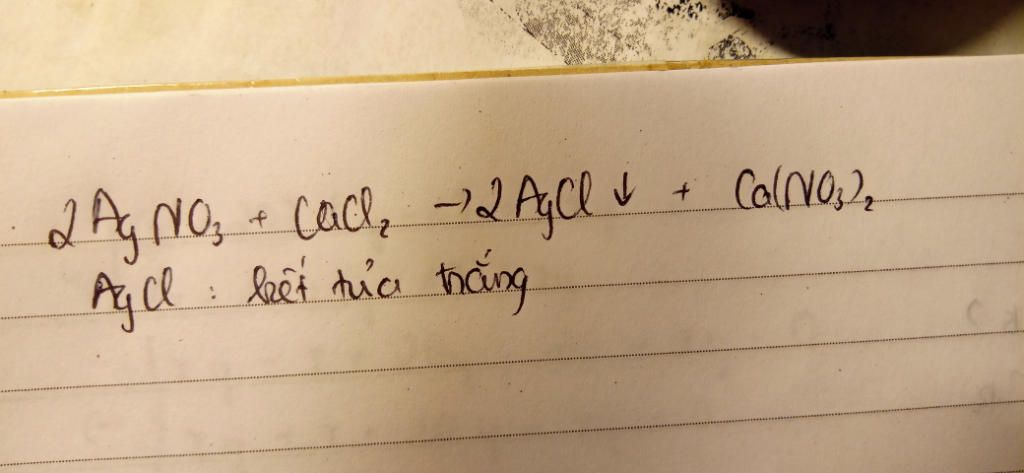 2AgNO₃ + CaCl₂ → 2AgCl ↓ + Ca(NO₃)₂
AgCl : kết tủa trắng